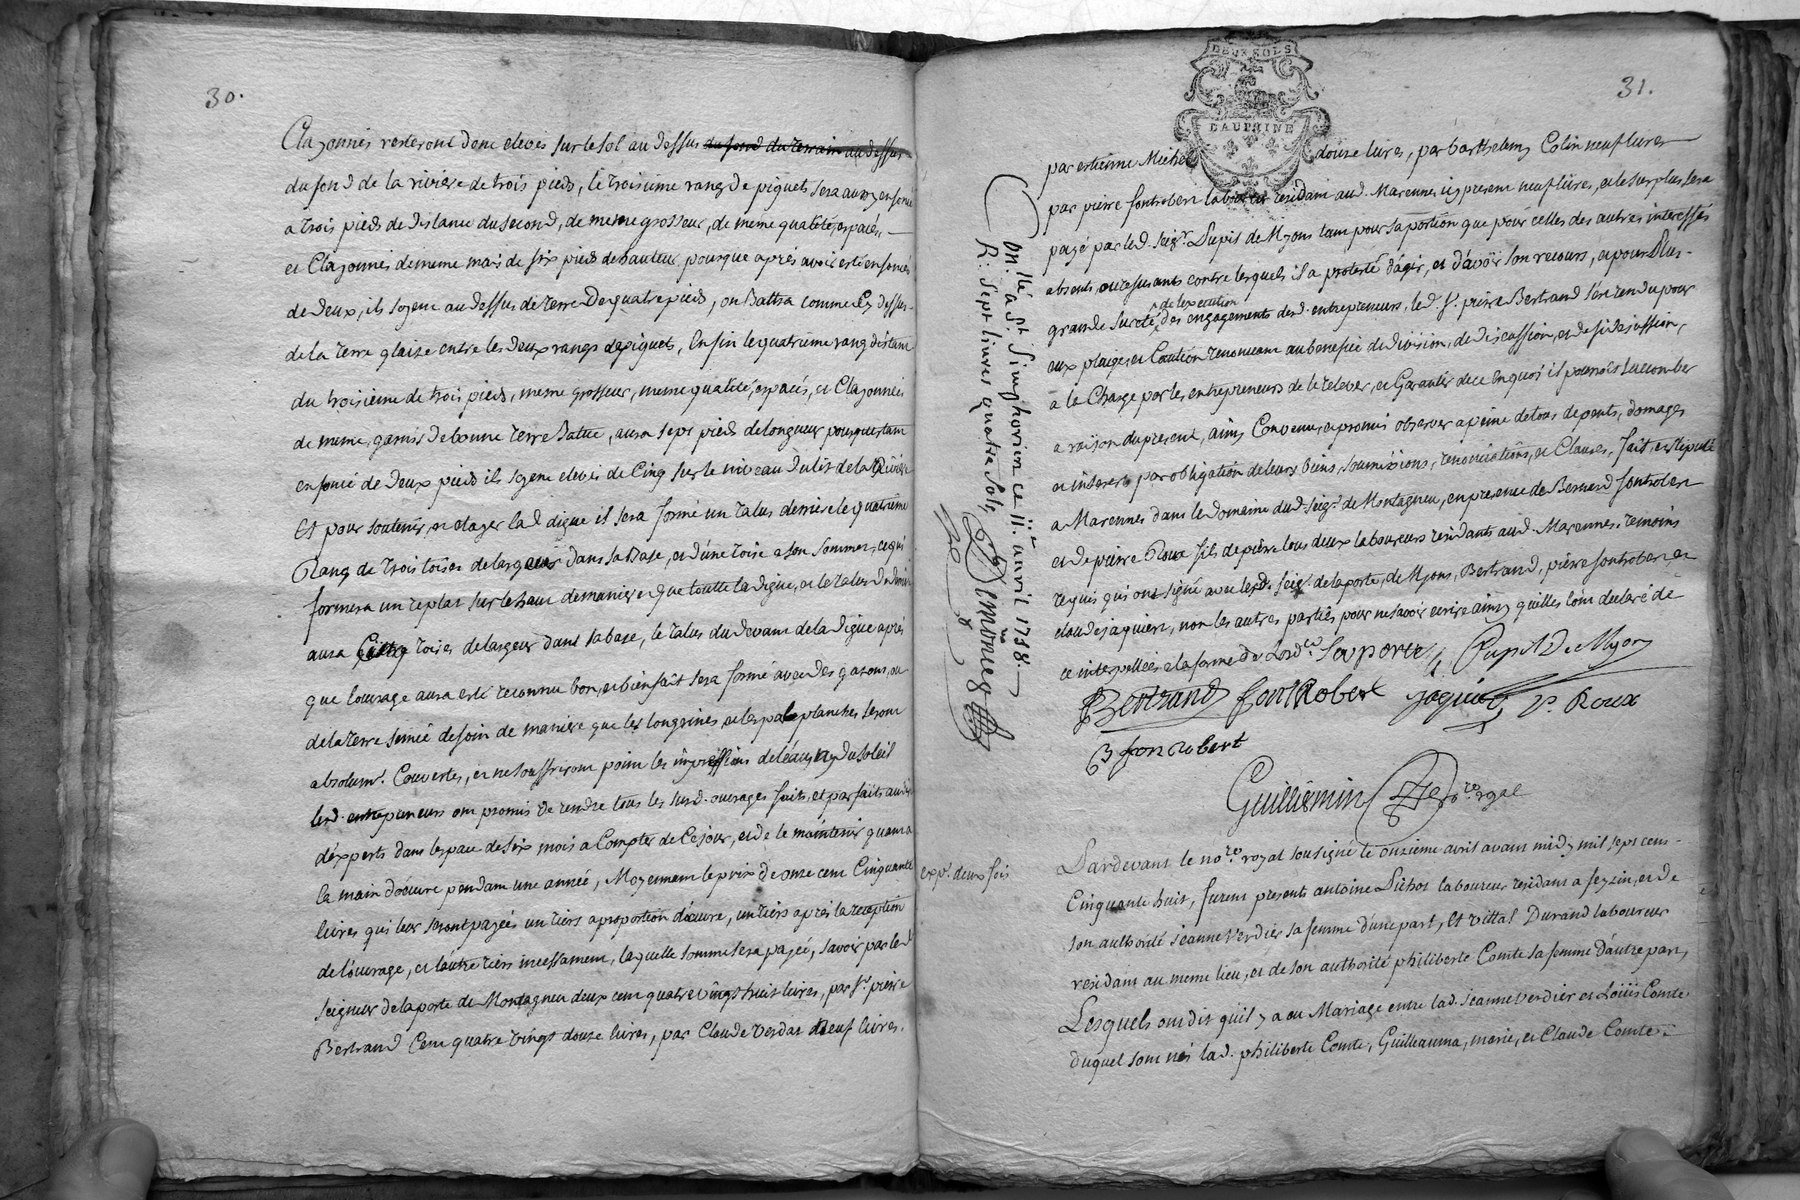 30.
Clayonnés resteront donc elevés sur le sol au dessus du fond du terrain au dessus
du fond de la riviere de trois pieds, le troisieme rang de piquets sera aussy enfoncé
a trois pieds de distance du second, de meme grosseur, de meme qualité, espacés,
et Clayonnés de meme mais de six pieds de hauteur pour que aprés avoir esté enfoncés
de deux, ils soyent au dessus de terre de quatre pieds, on Battra comme Cy dessus
de la terre glaize entre les deux rangs de piquets, Enfin le quatrieme rang distant
du troisieme de trois pieds, meme grosseur, meme qualité, espacés, et Clayonnés
de meme, garnis de bonne terre Battue, aura sept pieds de longueur pour questant
enfoncé de deux pieds ils soyent elevés de Cinq sur le niveau du lit de la Riviere
Et pour soutenir, et etayer lad digue il sera formé un talus derriere le quatrieme
Rang de trois toises de largeur dans sa Base, et d'une toise a son sommet, ce qui
formera un replat sur le haut de maniere que toutte la digue, et le talus de derriere
aura toises de largeur dans sa base, le talus du devant de la digue aprés
que l'ouvrage aura esté reconnu bon, et bien fait sera formé avec des gazons, ou
de la terre semée de foin de maniere que les longrines, et les palplanches seront
absolumt. Couvertes, et ne souffriront point les impressions de l'eau, ny du soleil
lesd. entrepreneurs ont promis de rendre tous les susd. ouvrages faits, et parfaits au dire
d'experts dans l'espace de six mois a Compter de Ce jour, et de le maintenir quant a
la main d'oeuvre pendant une année, Moyennant le prix de onze cent Cinquante
livres qui leur seront payées un tiers a proportion d'oeuvre, un tiers aprés la reception
de l'ouvrage, et l'autre tiers incessament, laquelle somme sera payée, savoir par led
seigneur de la porte de Montagneu deux cent quatre vingt huit livres, par sr. pierre
Bertrand Cent quatre vingt douze livres, par Claude verdat neuf livres.
31.
DEUX SOLS
DAUPHINE
par estienne Michel douze livres, par barthelemy Colin neuf livres
par pierre fontrobert laboureur residant aud. Marennes icy present neuf livres, et le surplus sera
payé par led. seigr. Cupis de Myons tant pour sa portion que pour celles des autres interessés
absents, ou refusants contre lesquels il a protesté d'agir, et d'avoir son recours, et pour Plus
de l'execution
grande sureté des engagements desd. entrepreneurs, led sr. pierre Bertrand s'est rendu pour
eux plaige, et Caution renonceant au benefice de division, de discussion, et de fidejussion,
a la Charge par les entrepreneurs de le relever, et Garantir de ce En quoi il pourroit succomber
a raison du present, ainsy Convenu, et promis observer a peine de tous depents, domages
et interets par obligation de leurs biens, soumissions, renonciations, et Clauses. fait, et stipulé
a Marennes dans le domaine dud. seigr. de Montagneu, en presence de Bernard fontrobert
et de pierre Roux fils de pierre tous deux laboureurs residants aud. Marennes. temoins
requis qui ont signé avec lesd. seigr. de laporte, de Myons, Bertrand, pierre fontrobert, et
claude jaquier, non les autres parties pour ne savoir ecrire ainsy quelles l'ont declaré de
ce interpellées a la forme de Lordce. Laporte Cupis De Myon
Bertrand fontRobert jaquier P. Roux
B fontrobert
Guillermin Nore royal
onllé a St. Simphorien ce 11e. avril 1758.
R: sept livres quatre sols
expé. deux fois
Pardevant le nore. royal soussigné le onzieme avril avant midy mil sept cent
Cinquante huit, furent presents antoine Pichot laboureur residant a feyzin, et de
son authorité jeanne verdier sa femme d'une part, Et vittal Durand laboureur
residant au meme lieu, et de son authorité philiberte Comte sa femme d'autre part,
Lesquels ont dit quil y a eu Mariage entre lad. jeanne verdier et Loüis Comte
duquel sont nés lad. philiberte Comte, Guilleauma, marie, et Claude Comte